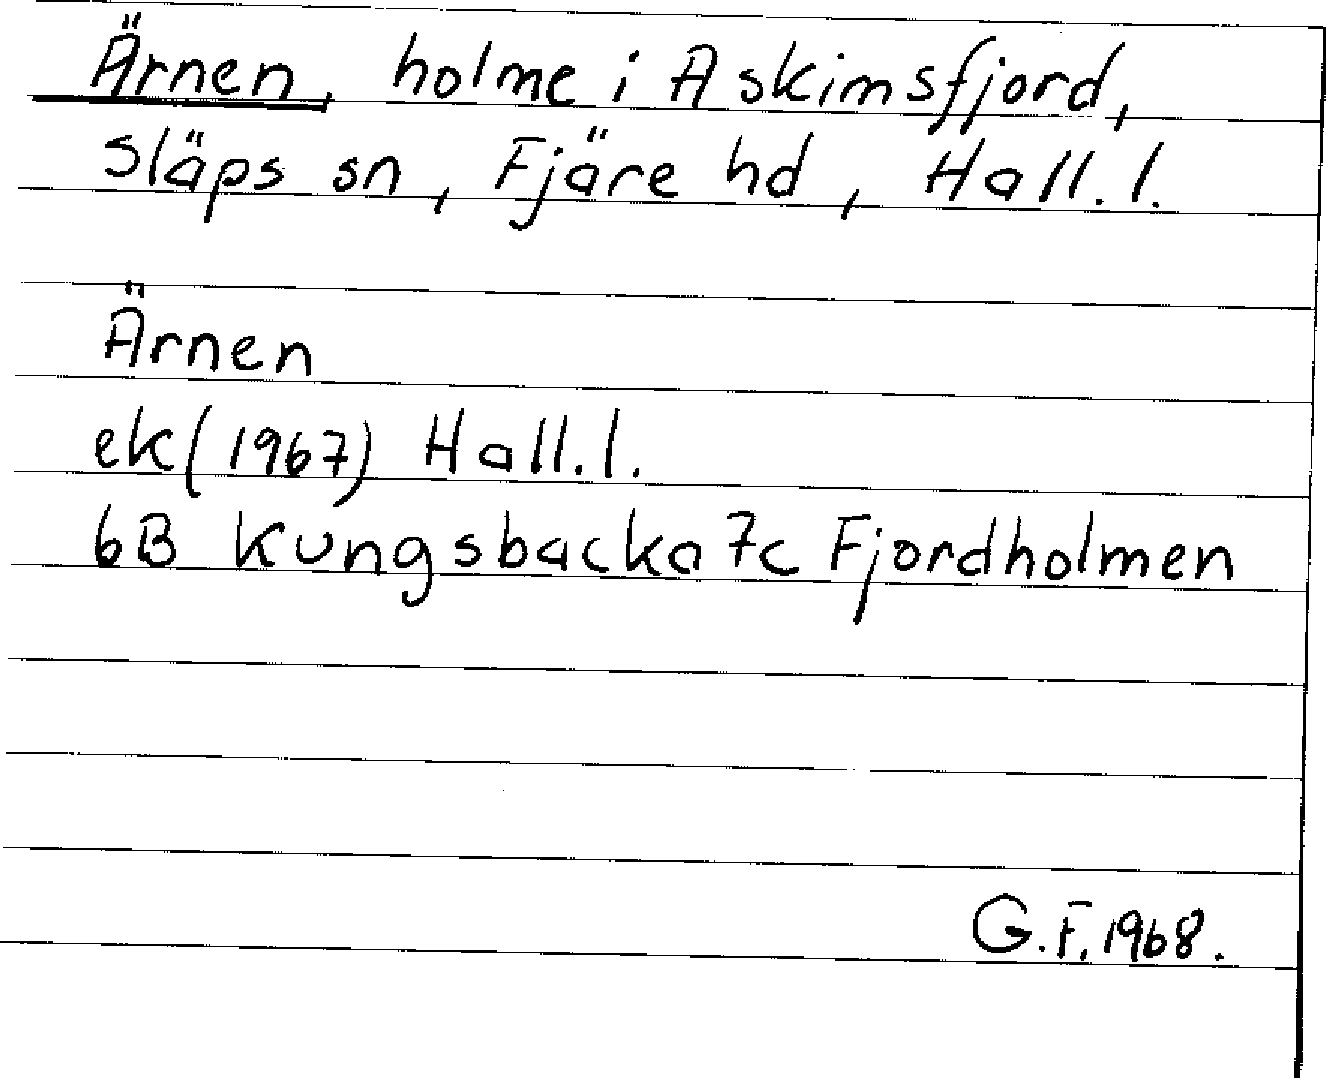 Ärnen, holme i Askimsfjord,
släps sn, Fjäre hd, Hall.l.
Ärnen
ek(1967) Hall.l.
6B Kungsbacka 7c Fjordholmen
G.F. 1968.